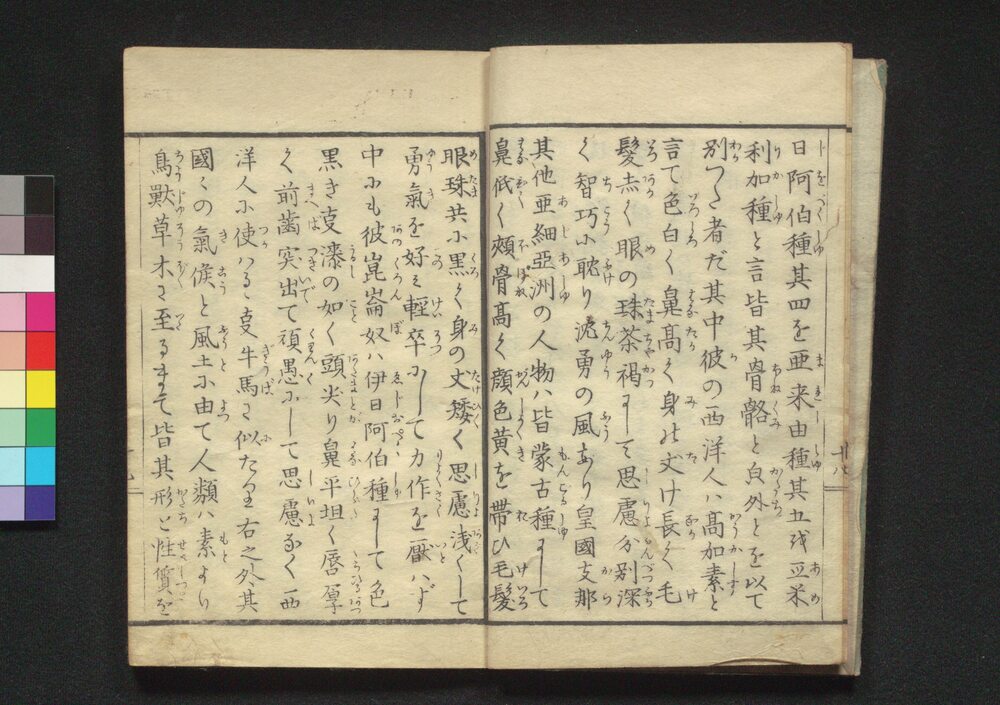 日阿伯種其四を亜来由種其五或亜米
利加種と言皆其骨骼と貞外とを以て
別つた者だ其中彼の西洋人ハ高加素と
言て色白く鼻高く身の丈け長く毛
髪赤く眼の珠茶褐にして思慮分別深
く智巧に耽り沈勇の風あり皇國支那
其他亜細亞洲の人物ハ皆蒙古種にして
鼻低く頬骨高く顔色黄を帯ひ毛髪
眼珠共に黒く身の丈矮く思慮浅くして
勇氣を好ミ軽卒にして力作を厭ハず
中にも彼崑崙奴ハ伊日阿伯種にして色
黒き㕝漆の如く頭尖り鼻平坦く唇厚
く前歯突出て頑愚にして思慮なく西
洋人に使ハるゝ㕝牛馬に似たり右之外其
國々の氣候と風土に由て人類ハ素より
鳥獣草木に至るまて皆其形と性質を